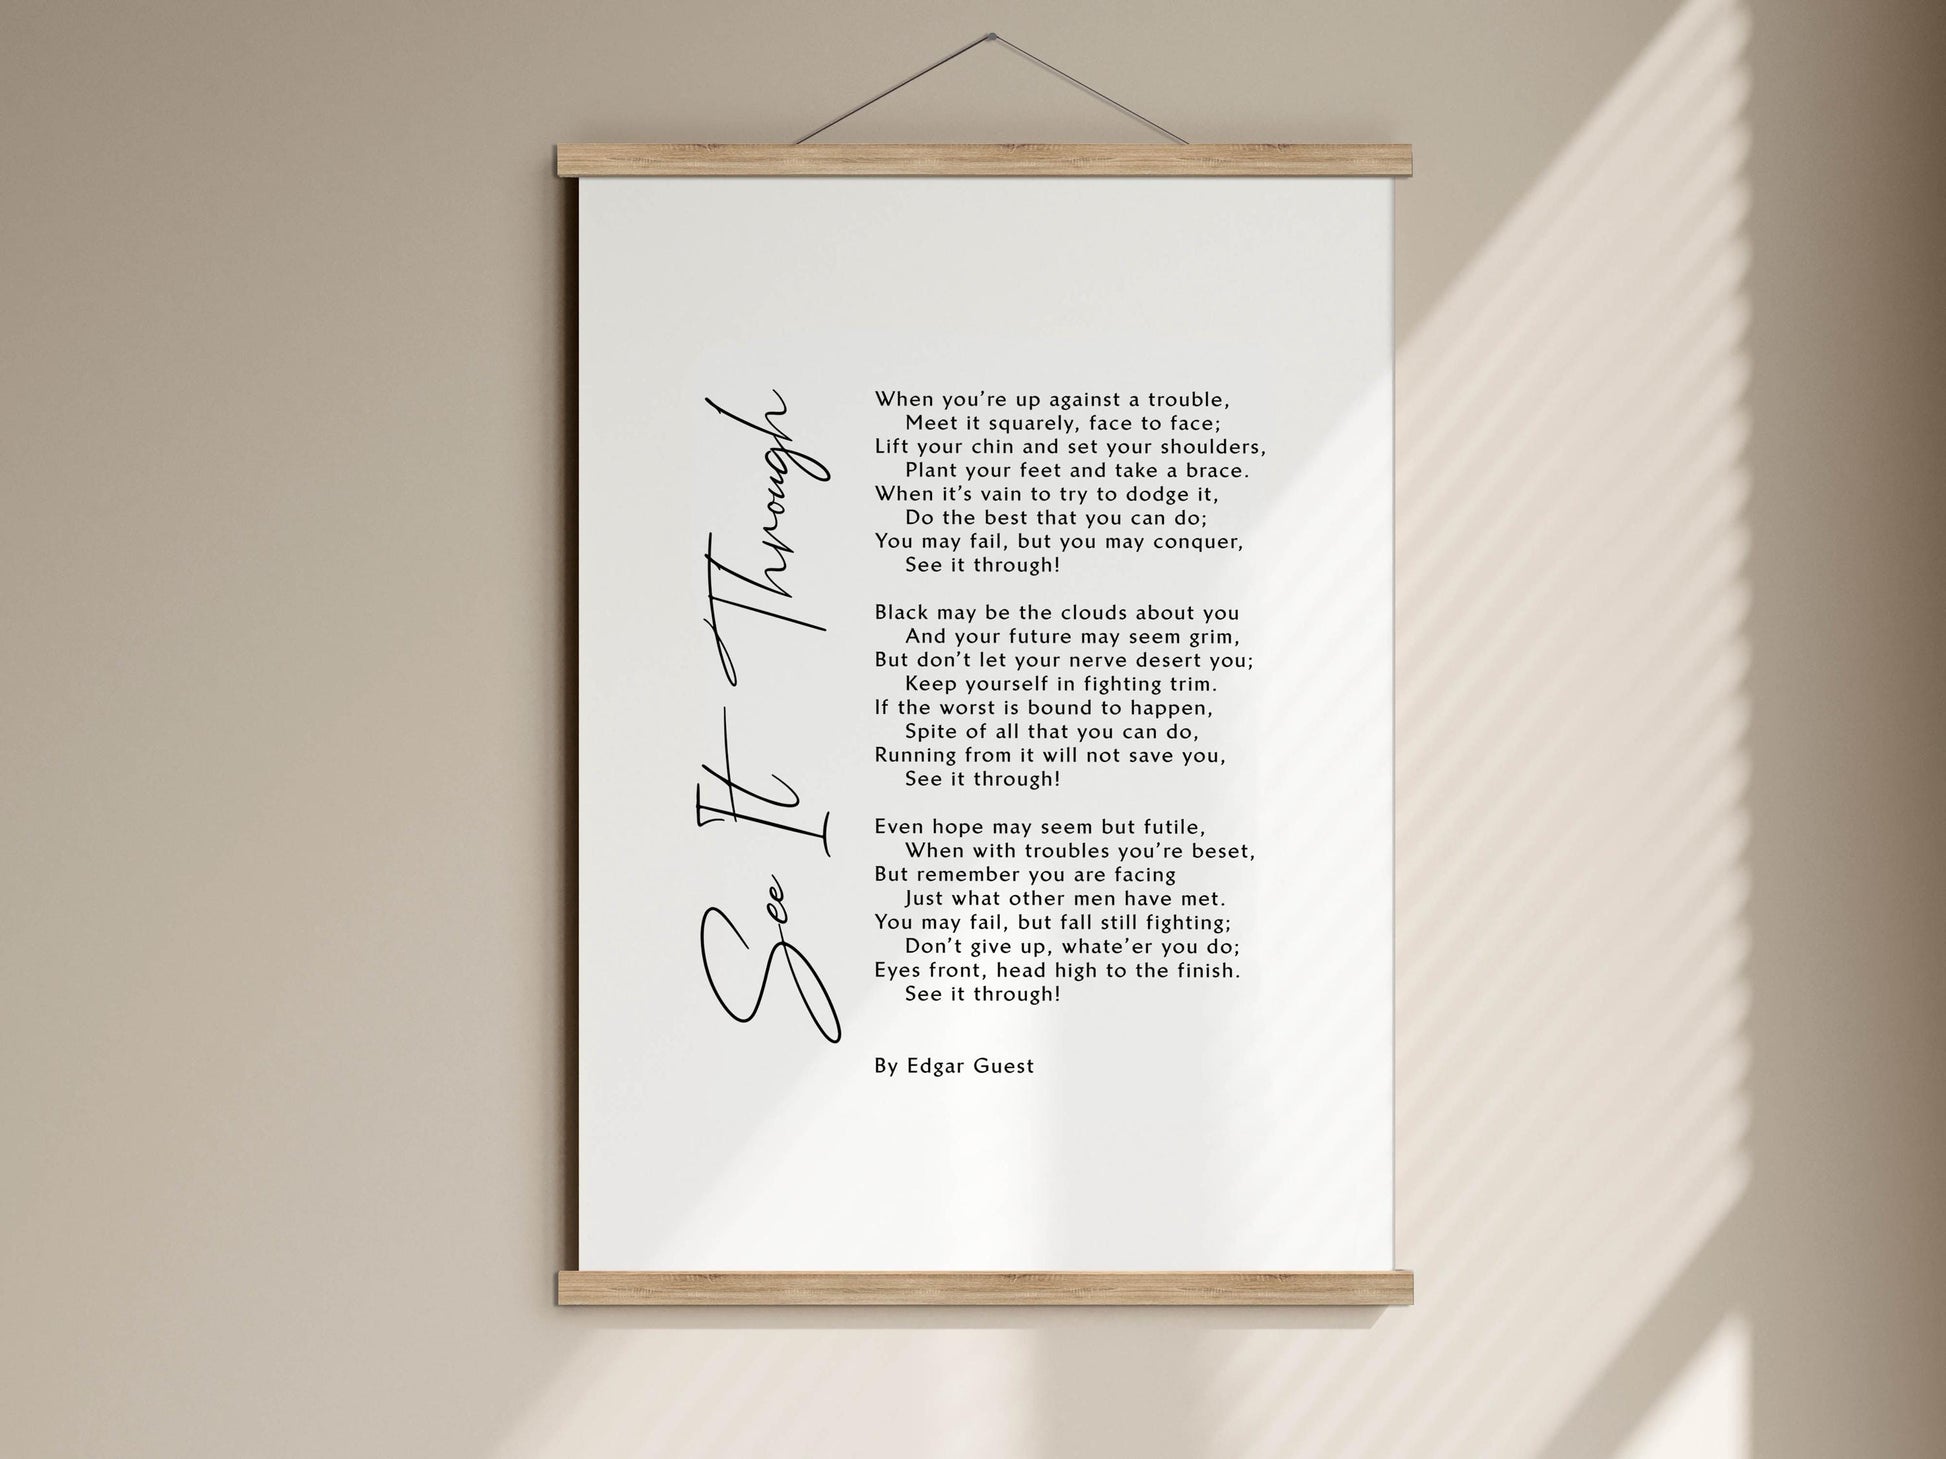 See It Through
When you're up against a trouble,
Meet it squarely, face to face;
Lift your chin and set your shoulders,
Plant your feet and take a brace.
When it's vain to try to dodge it,
Do the best that you can do;
You may fail, but you may conquer,
See it through!
Black may be the clouds about you
And your future may seem grim,
But don't let your nerve desert you;
Keep yourself in fighting trim.
If the worst is bound to happen,
Spite of all that you can do,
Running from it will not save you,
See it through!
Even hope may seem but futile,
When with troubles you're beset,
But remember you are facing
Just what other men have met.
You may fail, but fall still fighting;
Don't give up, whate'er you do;
Eyes front, head high to the finish.
See it through!
By Edgar Guest